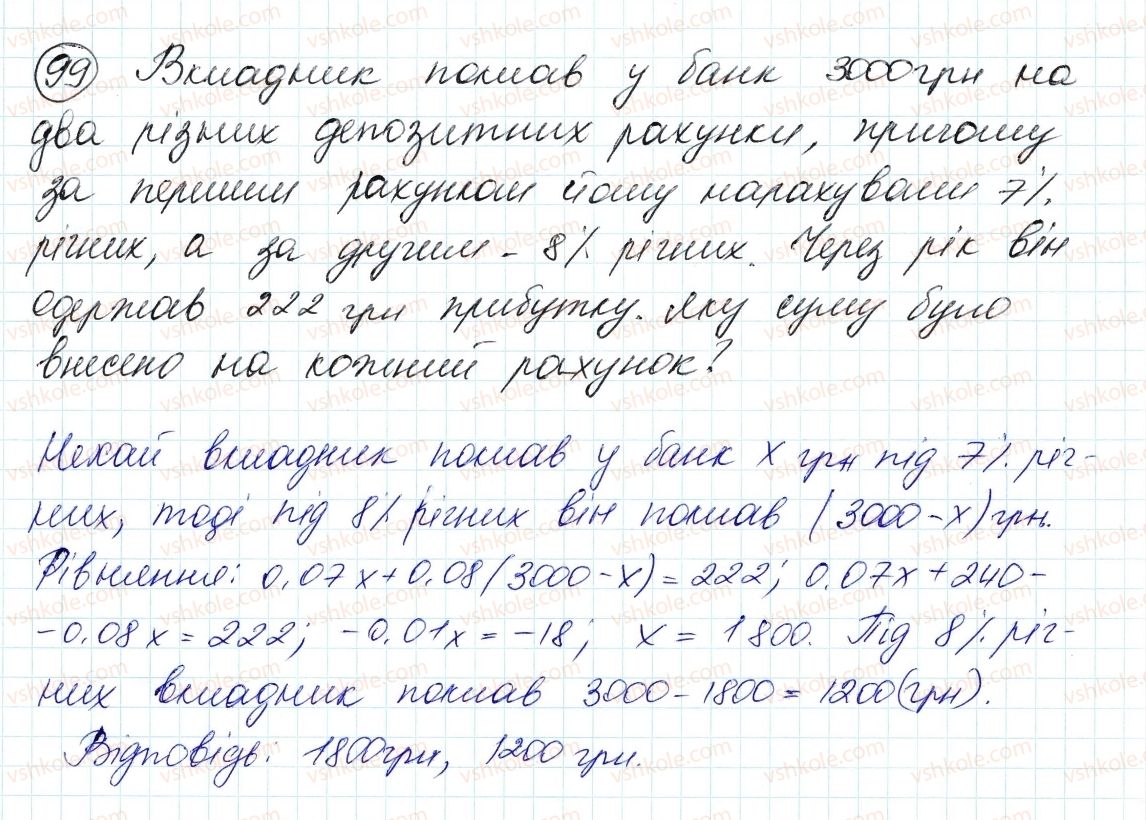 99 Вкладник поклав у банк 3000 грн на
два різних депозитних рахунки, причому
за першим рахунком йому нарахували 7%
річних, а за другим - 8% річних. Через рік він
одержав 222 грн прибутку. Яку суму було
внесено на кожний рахунок?
Нехай вкладник поклав у банк x грн під 7% річ-
них, тоді під 8% річних він поклав (3000-x) грн.
Рівняння: 0.07x+0.08(3000-x)=222; 0.07x+240-
-0.08x=222; -0.01x=-18; x=1800. Під 8% річ-
них вкладник поклав 3000-1800=1200(грн).
Відповідь: 1800грн, 1200 грн.